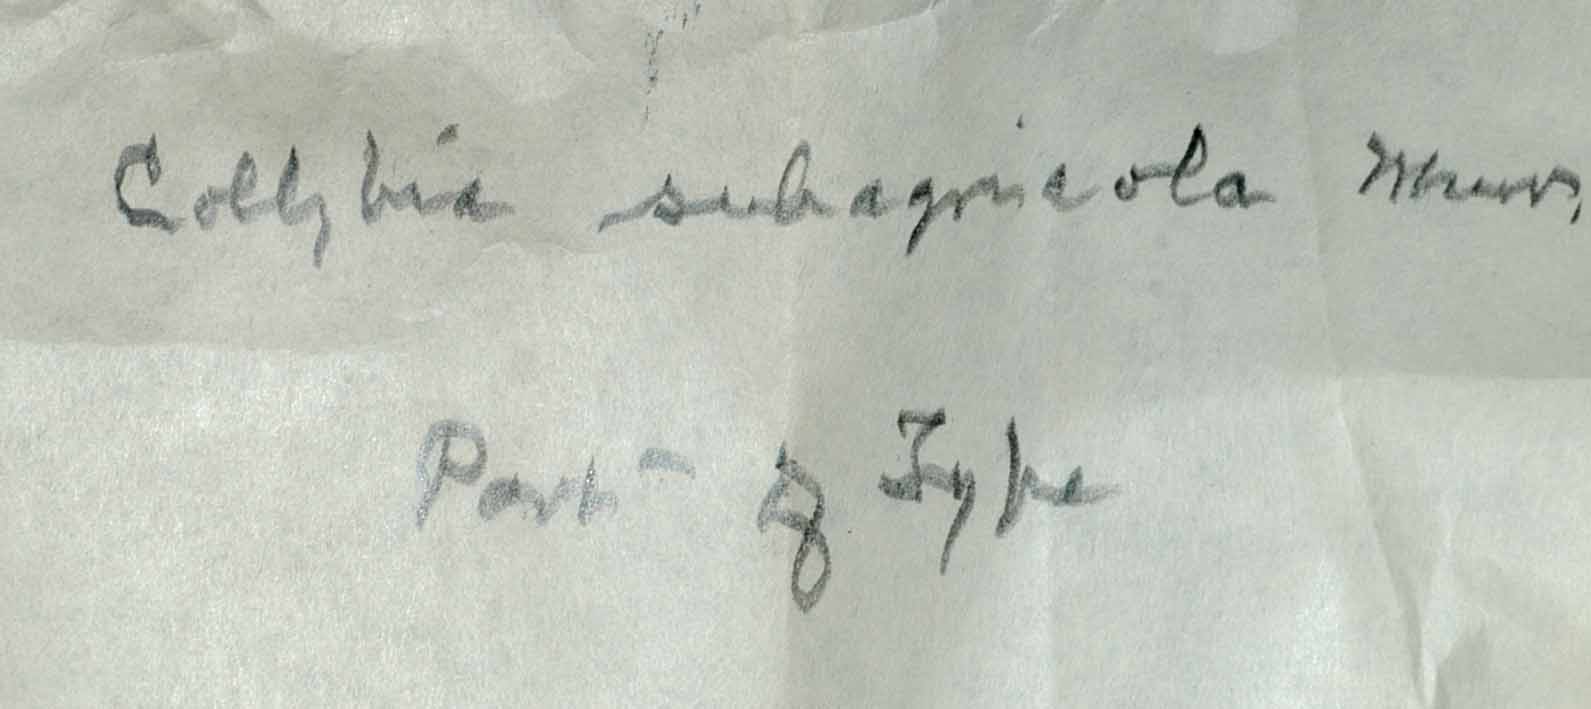 Collybia subagricola Murr.
Part of Type